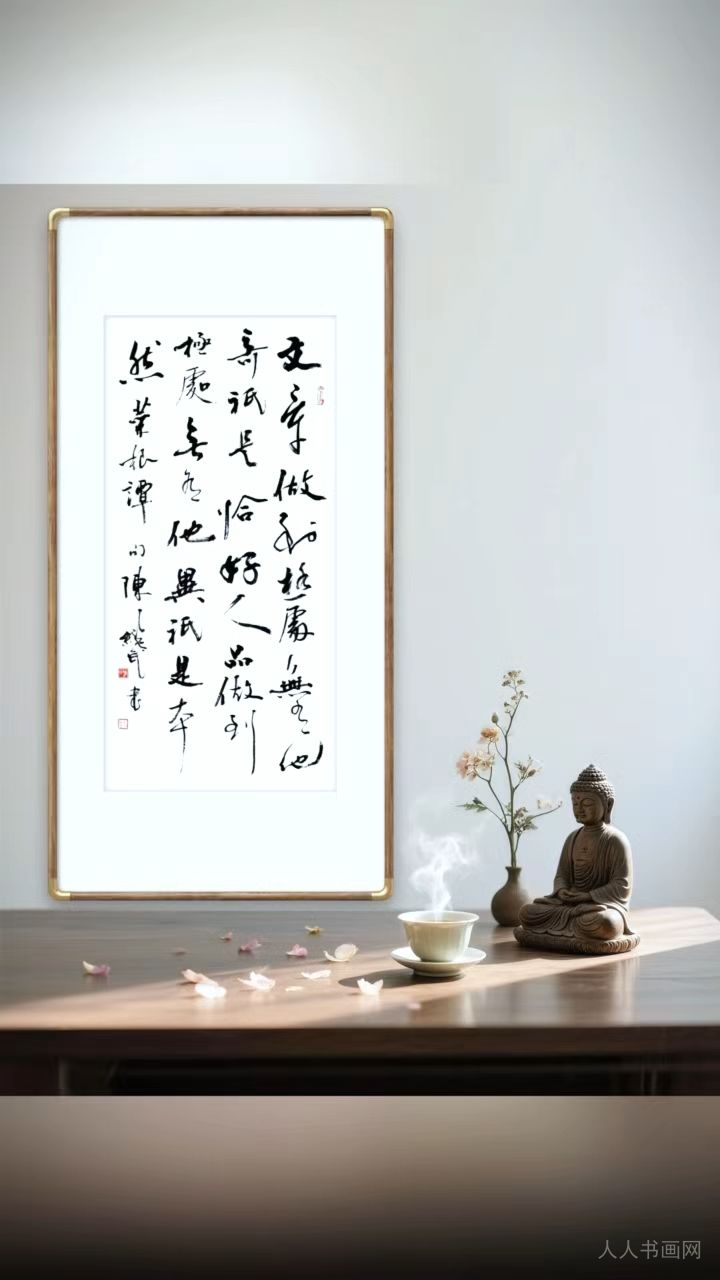 文章做到極處無有他
奇祇是恰好人品做到
極處無有他異祇是本
然 菜根譚句 陳 書
人人书画网